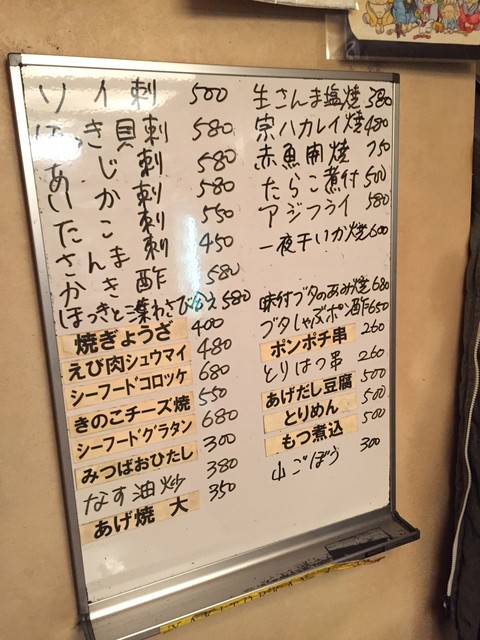 ソイ刺 500
ほっき貝刺 580
あじ刺 580
いか刺 580
たこ刺 550
さんま刺 450
かき酢 580
ほっきと藻わさび合え 580
焼ぎょうざ 400
えび肉シュウマイ 480
シーフードコロッケ 680
きのこチーズ焼 550
シーフードグラタン 680
みつばおひたし 300
なす油炒 380
あげ焼 大 350
生さんま塩焼 380
宗ハカレイ焼 480
赤魚開焼 750
たらこ煮付 500
アジフライ 580
一夜干いか焼 600
味付ブタのあみ焼 680
ブタしゃぶポン酢 650
ポンポチ串 260
とりはつ串 260
あげだし豆腐 500
とりめん 500
もつ煮込 500
山ごぼう 300